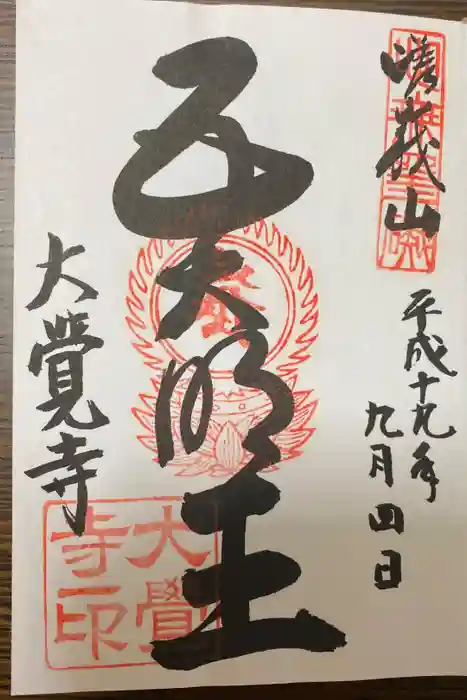 嵯峩山
平成十九年
九月四日
五大明王
大覺寺
大覺
寺印